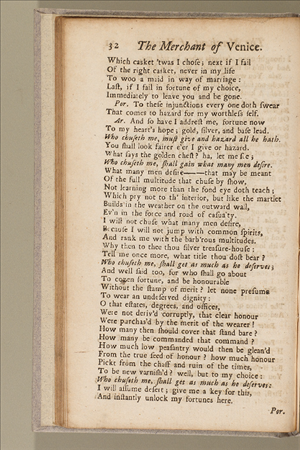 32 The Merchant of Venice.
Which casket 'twas I chose; next if I fail
Of the right casket, never in my life
To woo a maid in way of marriage:
Last, if I fail in fortune of my choice,
Immediately to leave you and be gone.
Por. To these injunctions every one doth swear
That comes to hazard for my worthless self.
Ar. And so have I addrest me, fortune now
To my heart's hope; gold, silver, and base lead.
Who chuseth me, must give and hazard all he hath.
You shall look fairer e'er I give or hazard.
What says the golden chest? ha, let me see;
Who chuseth me, shall gain what many men desire.
What many men desire——that may be meant
Of the full multitude that chuse by show,
Not learning more than the fond eye doth teach;
Which pry not to th' interior, but like the martlet
Builds in the weather on the outward wall,
Ev'n in the force and road of casualty.
I will not chuse what many men desire,
Because I will not jump with common spirits,
And rank me with the barb'rous multitudes.
Why then to thee thou silver treasure-house:
Tell me once more, what title thou dost bear?
Who chuseth me, shall get as much as he deserves;
And well said too, for who shall go about
To cozen fortune, and be honourable
Without the stamp of merit? let none presume
To wear an undeserved dignity:
O that estates, degrees, and offices,
Were not deriv'd corruptly, that clear honour
Were purchas'd by the merit of the wearer!
How many then should cover that stand bare?
How many be commanded that command?
How much low peasantry would then be glean'd
From the true seed of honour? how much honour
Pickt from the chaff and ruin of the times,
To be new varnish'd? well, but to my choice:
Who chuseth me, shall get as much as he deserves:
I will assume desert; give me a key for this,
And instantly unlock my fortunes here.
Por.